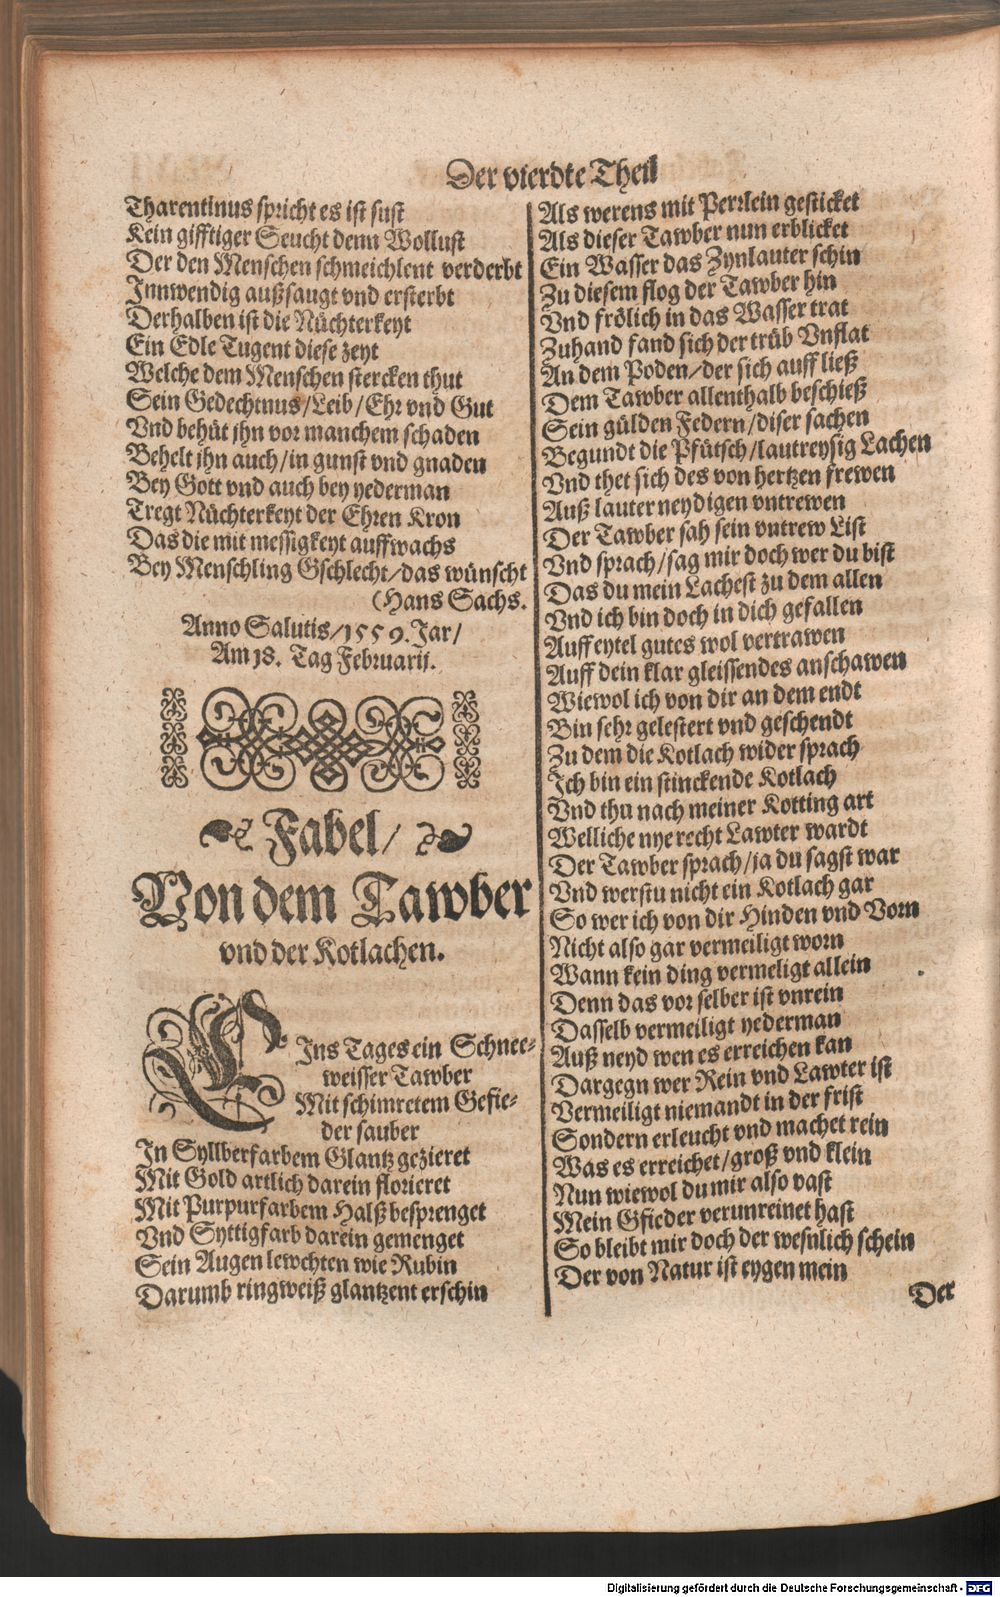 Der vierdte Theil
Tharentinus spricht es ist sust
Kein gifftiger Seucht denn Wollust
Der den Menschen schmeichlent verderbt
Innwendig außsaugt vnd ersterbt
Derhalben ist die Nüchterkeyt
Ein Edle Tugent diese zeyt
Welche dem Menschen stercken thut
Sein Gedechtnus/Leib/Ehr vnd Gut
Vnd behüt jhn vor manchem schaden
Behelt jhn auch/in gunst vnd gnaden
Bey Gott vnd auch bey yederman
Tregt Nüchterkeyt der Ehren Kron
Das die mit messigkeyt auffwachs
Bey Menschling Gschlecht/das wünscht
(Hans Sachs.
Anno Salutis/1559.Jar/
Am 18. Tag Februarij.
Fabel/
Von dem Tawber
vnd der Kotlachen.
EIns Tages ein Schnee-
weisser Tawber
Mit schimretem Gefie-
der sauber
In Syllberfarbem Glantz gezieret
Mit Gold artlich darein florieret
Mit Purpurfarbem Halß besprenget
Vnd Syttigfarb darein gemenget
Sein Augen lewchten wie Rubin
Darumb ringweiß glantzent erschin
Als werens mit Perrlein gesticket
Als dieser Tawber nun erblicket
Ein Wasser das Zynlauter schin
Zu diesem flog der Tawber hin
Vnd frölich in das Wasser trat
Zuhand fand sich der trüb Vnflat
An dem Poden/der sich auff ließ
Dem Tawber allenthalb beschieß
Sein gülden Federn/diser sachen
Begundt die Pfütsch/lautreysig Lachen
Vnd thet sich des von hertzen frewen
Auß lauter neydigen vntrewen
Der Tawber sah sein vntrew List
Vnd sprach/sag mir doch wer du bist
Das du mein Lachest zu dem allen
Vnd ich bin doch in dich gefallen
Auff eytel gutes wol vertrawen
Auff dein klar gleissendes anschawen
Wiewol ich von dir an dem endt
Bin sehr gelestert vnd geschendt
Zu dem die Kotlach wider sprach
Ich bin ein stinckende Kotlach
Vnd thu nach meiner Kotting art
Welliche nye recht Lawter wardt
Der Tawber sprach/ja du sagst war
Vnd werstu nicht ein Kotlach gar
So wer ich von dir Hinden vnd Vorn
Nicht also gar vermeiligt worn
Wann kein ding vermeligt allein
Denn das vor selber ist vnrein
Dasselb vermeiligt yederman
Auß neyd wen es erreichen kan
Dargegn wer Rein vnd Lawter ist
Vermeiligt niemandt in der frist
Sondern erleucht vnd machet rein
Was es erreichet/groß vnd klein
Nun wiewol du mir also vast
Mein Gfieder verunreinet hast
So bleibt mir doch der wesnlich schein
Der von Natur ist eygen mein
Der
Digitalisierung gefördert durch die Deutsche Forschungsgemeinschaft - DFG